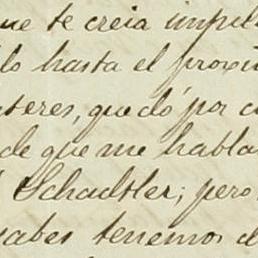 ue te creia impul
lo hasta el proxi
nteres, quedó por c
de que me habla
Schaditler; pero
sabes tenemos d